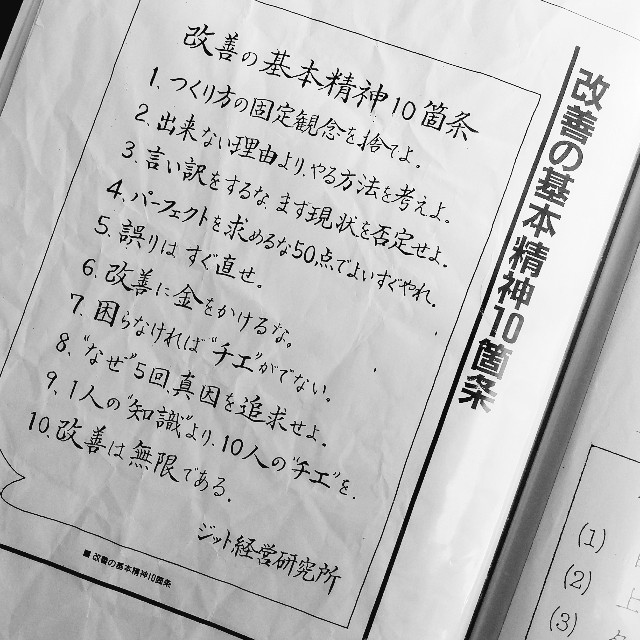 改善の基本精神10箇条
1. つくり方の固定観念を捨てよ。
2. 出来ない理由より、やる方法を考えよ。
3. 言い訳をするな、まず現状を否定せよ。
4. パーフェクトを求めるな50点でよいすぐやれ。
5. 誤りは すぐ直せ。
6. 改善に金をかけるな。
7. 困らなければ“チエ”がでない。
8. “なぜ”5回、真因を追求せよ。
9. 1人の“知識”より、10人の“チエ”を.
10. 改善は無限である.
ジット経営研究所
■ 改善の基本精神10箇条
改善の基本精神10箇条
(1)
(2) 上
(3)